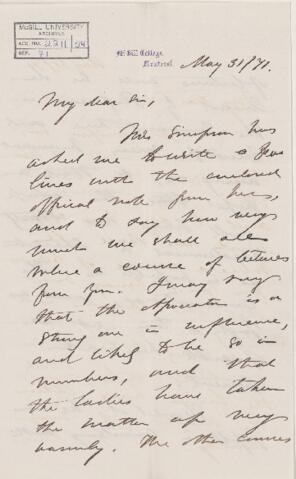 McGILL UNIVERSITY
ARCHIVES
ACC. NO. 2211/
REF. 71
McGill College
Montreal
May 31/71.
My dear Sir,
Mrs Simpson has
asked me to write a few
lines with the enclosed
official note from her,
and to say how very
much we shall all
value a course of lectures
from you. I may say
that the Association is a
strong one in influence,
and likely to be so in
numbers, and that
the ladies have taken
the matter up very
warmly. The other courses